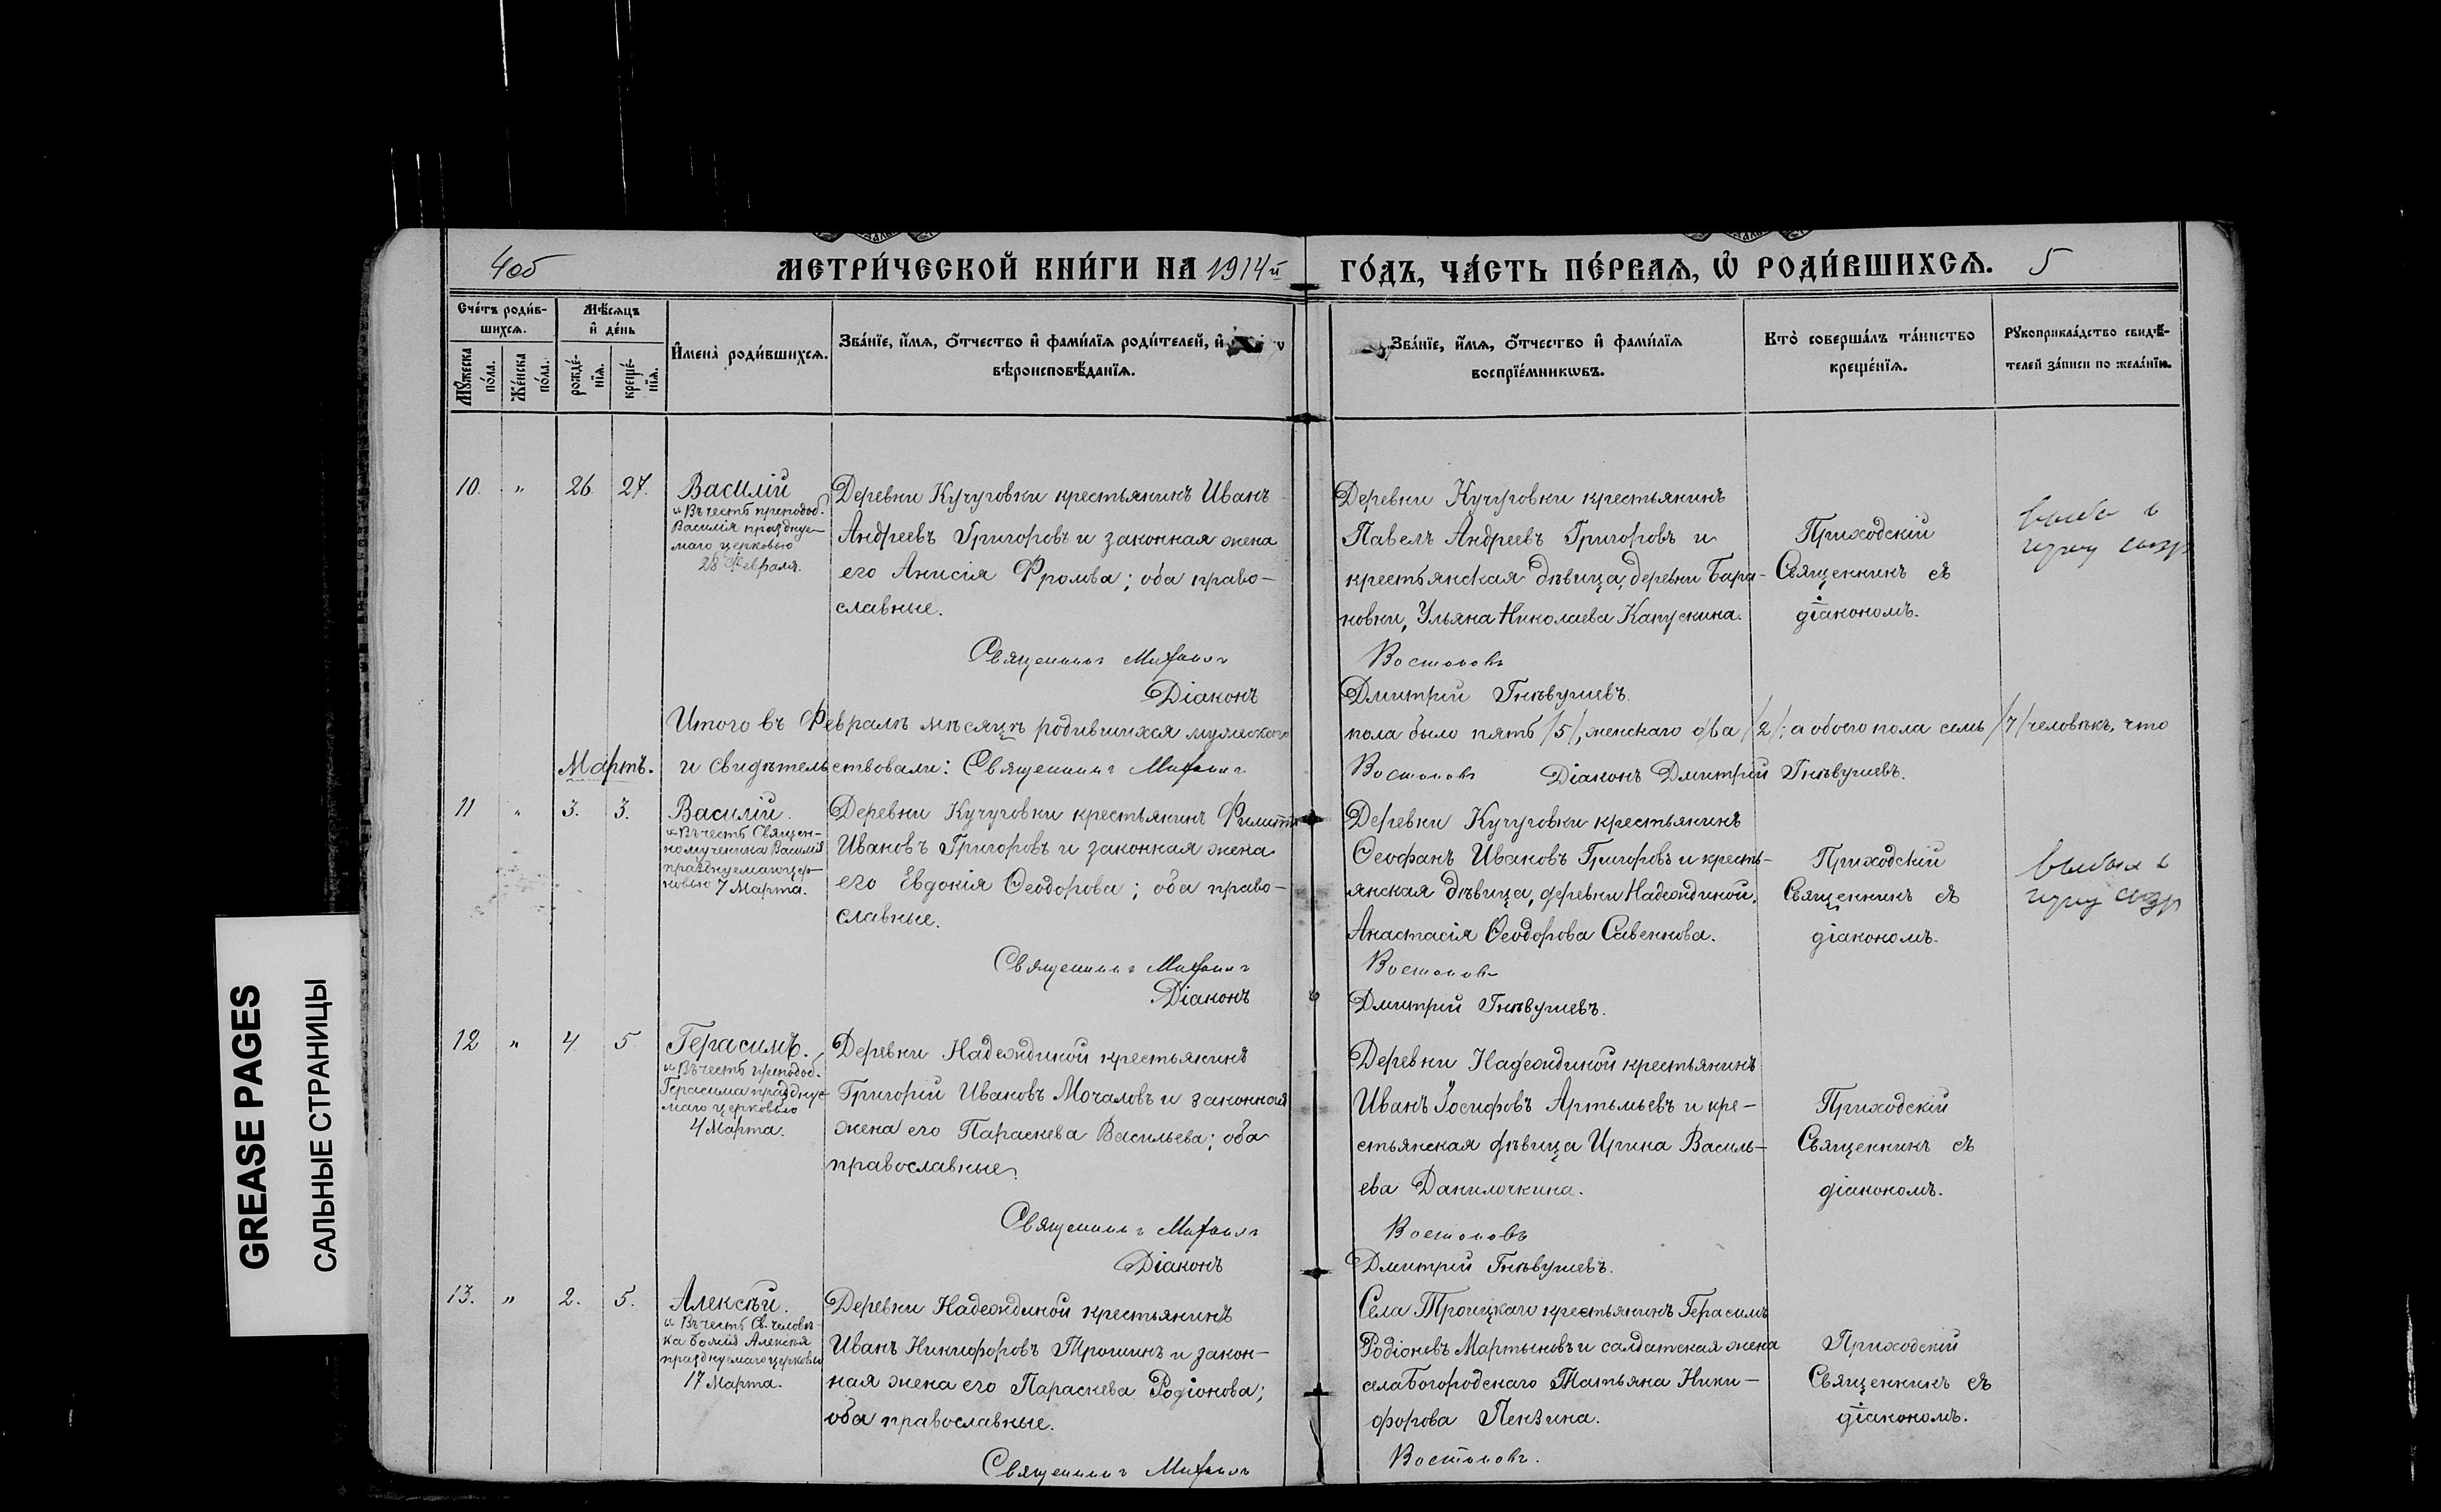 4об
МЕТРИ́ЧЕСКОЙ КНИ́ГИ НА 1914й ГО́ДЪ, ЧА́СТЬ ПЕ́РВАѦ, Ѡ҆ РОДИ́ВШИХСѦ. 5
Сче́тъ роди́в-
шихсѧ.
Мꙋ́жеска
по́ла.
Же́нска
по́ла.
Мѣ́сѧцъ
и҆ де́нь
рожде́-
нїѧ.
креще́-
нїѧ.
И҆мена̀ роди́вшихсѧ.
Зва́нїе, и҆́мѧ, ѻ҆́тчество и҆ фами́лїѧ роди́телей, и҆
вѣроисповѣ́данїѧ.
Зва́нїе, и҆́мѧ, ѻ҆́тчество и҆ фами́лїѧ
воспрїе́мникѡвъ.
Кто̀ соверша́лъ та́инство
креще́нїѧ.
Рꙋкоприкла́дство свидѣ́-
телей за́писи по жела́нїю.
10. " 26 27.
Василій
"Въ честь преподоб.
Василія праздуе-
маго церковью
28 Февраля.
Деревни Кучуговки крестьянинъ Иванъ
Андреевъ Григоровъ и законная жена
его Анисія Фромва; оба право-
славные.
Священникъ Михаилъ
Діаконъ
Деревни Кучуговки крестьянинъ
Павелъ Андреевъ Григоровъ и
крестьянская дѣвица, деревни Бара-
новки, Ульяна Николаева Капускина.
Востоковъ
Дмитрій Гнѣвушевъ.
Приходскій
Священникъ съ
діакономъ.
Итого въ Февралѣ мѣсяцѣ родившихся мужескаго пола было пять /5/, женскаго два /2/; а обоего пола семь /7/ человѣкъ, что
и свидѣтельствовали: Священникъ Михаилъ Востоковъ Діаконъ Дмитрій Гнѣвушевъ.
Мартъ.
11 " 3. 3.
Василій.
"Въ честь Священ-
номученика Василія
празднуемаго цер-
ковью 7 Марта.
Деревни Кучуговки крестьянинъ Филиппъ
Ивановъ Григоровъ и законная жена
его Евдокія Ѳеодорова; оба право-
славные.
Священникъ Михаилъ
Діаконъ
Деревни Кучуговки крестьянинъ
Ѳеофанъ Ивановъ Григоровъ и кресть-
янская дѣвица, деревни Надеждиной,
Анастасія Ѳеодорова Савенкова.
Востоковъ
Дмитрій Гнѣвушевъ.
Приходскій
Священникъ съ
діакономъ.
12 " 4 5
Герасимъ.
"Въ честь преподоб.
Герасима праздуе-
маго церковью
4 Марта.
Деревни Надеждиной крестьянинъ
Григорій Ивановъ Мочаловъ и законная
жена его Параскева Васильева; оба
православные.
Священникъ Михаилъ
Діаконъ
Деревни Надеждиной крестьянинъ
Иванъ Іосифовъ Артемьевъ и кре-
стьянская дѣвица Ирина Василь-
ева Данилочкина.
Востоковъ
Дмитрій Гнѣвушевъ.
Приходскій
Священникъ съ
діакономъ.
13. " 2. 5.
Алексѣй.
"Въ честь Св. человѣ-
ка Божія Алексѣя
празднуемаго церковью
17 Марта.
Деревни Надеждиной крестьянинъ
Иванъ Никифоровъ Трошинъ и закон-
ная жена его Параскева Родіонова;
оба православные.
Священникъ Михаилъ
Села Троицкаго крестьянинъ Герасимъ
Родіоновъ Мартыновъ и салдатская жена
села Богородскаго Татьяна Ники-
форова Пензина.
Востоковъ.
Приходскій
Священникъ съ
діакономъ.
GREASE PAGES
САЛЬНЫЕ СТРАНИЦЫ